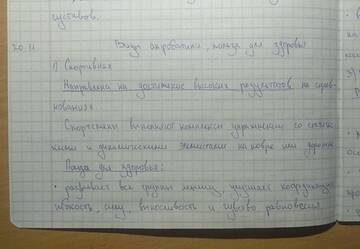 суставов.
20.11
Виды акробатики, польза для здоровья
1) Спортивная
Направлена на достижение высоких результатов на сорев-
нованиях
Спортсмены выполняют комплексы упражнений со статичес-
кими и динамическими элементами на ковре или дорожке
Польза для здоровья:
• развивает все группы мышц, улучшает координацию,
гибкость, силу, выносливость и чувство равновесия
на
3)